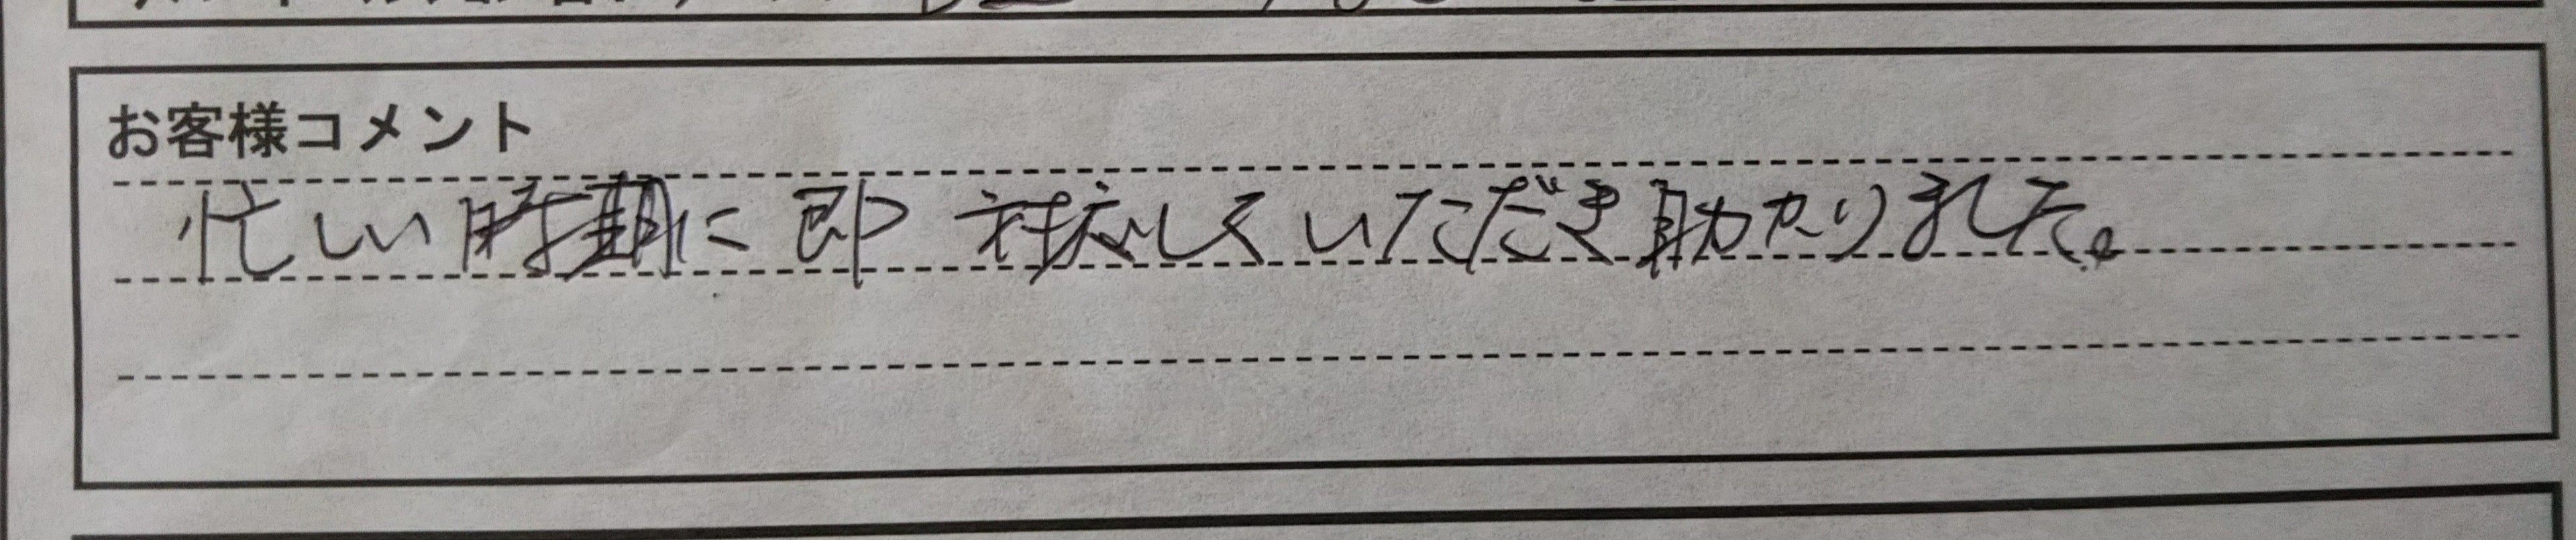 お客様コメント
忙しい時期に即対応していただき助かりました。